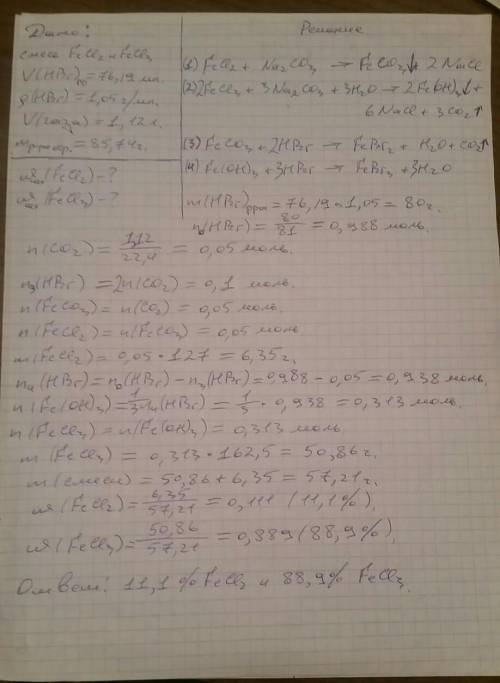 Дано:
смесь FeCl2 и FeCl3
V(HBr)р-р = 76,19 мл.
ρ(HBr) = 1,05 г/мл.
V(газа) = 1,12 л.
= 85,74 г.
(FeCl2) - ?
(FeCl3) - ?
Решение
(1) FeCl2 + Na2CO3 → FeCO3↓ + 2 NaCl
(2) 2FeCl3 + 3Na2CO3 + 3H2O → 2Fe(OH)3↓ +
6 NaCl + 3CO2↑
(3) FeCO3 + 2HBr → FeBr2 + H2O + CO2↑
(4) Fe(OH)3 + 3HBr → FeBr3 + 3H2O
m(HBr)р-ра = 76,19 · 1,05 = 80 г.
n0(HBr) = 80/81 = 0,988 моль.
n(CO2) = 1,12/22,4 = 0,05 моль.
n3(HBr) = 2n(CO2) = 0,1 моль.
n(FeCO3) = n(CO2) = 0,05 моль.
n(FeCl2) = n(FeCO3) = 0,05 моль
m(FeCl2) = 0,05 · 127 = 6,35 г.
n4(HBr) = n0(HBr) - n3(HBr) = 0,988 - 0,05 = 0,938 моль.
n(Fe(OH)3) = 1/3 n4(HBr) = 1/3 · 0,938 = 0,313 моль.
n(FeCl3) = n(Fe(OH)3) = 0,313 моль.
m(FeCl3) = 0,313 · 162,5 = 50,86 г.
m(смеси) = 50,86 + 6,35 = 57,21 г.
ω(FeCl2) = 6,35/57,21 = 0,111 (11,1%).
ω(FeCl3) = 50,86/57,21 = 0,889 (88,9%).
Ответ: 11,1% FeCl2 и 88,9% FeCl3.